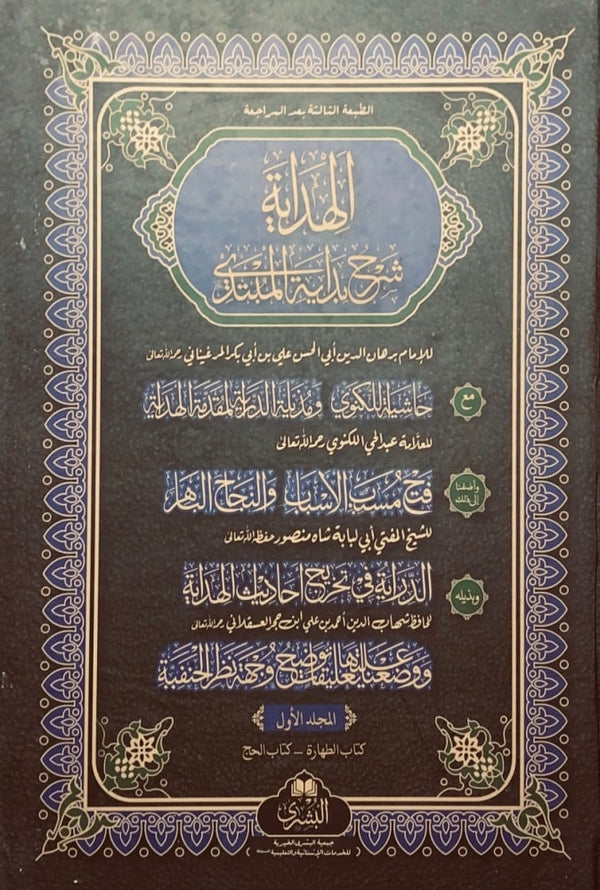 الطبعة الثالثة بعد المراجعة
الهداية
شرح بداية المبتدي
للإمام برهان الدين أبي الحسن علي بن أبي بكر المرغيناني رحمه الله تعالى
مع
حاشية اللكنوي ومذيلة الدراية لمقدمة الهداية
للعلامة عبد الحي اللكنوي رحمه الله تعالى
وأضفنا إلى ذلك
فتح مسبب الأسباب والنجاح الناهر
للشيخ المفتي أبي لبابة شاه منصور حفظه الله تعالى
وبذيله
الدراية في تخريج أحاديث الهداية
للحافظ شهاب الدين أحمد بن علي ابن حجر العسقلاني رحمه الله تعالى
ووضعنا عليها تعليقات توضح وجهة نظر الحنفية
المجلد الأول
كتاب الطهارة – كتاب الحج
البشرى
جمعية البشرى الخيرية
للخدمات الإنسانية والتعليمية